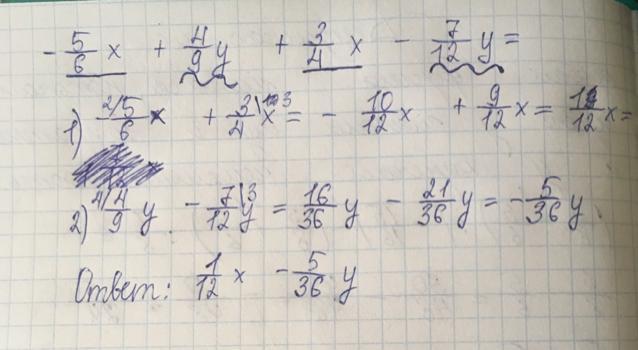 - 5/6 x + 4/9 y + 3/4 x - 7/12 y =
1) 2/ 5/6 x + 3/4 \3 x = - 10/12 x + 9/12 x = x =
2) 4/ 4/9 y - 7/12 \3 y = 16/36 y - 21/36 y = - 5/36 y
Ответ: 1/12 x - 5/36 y